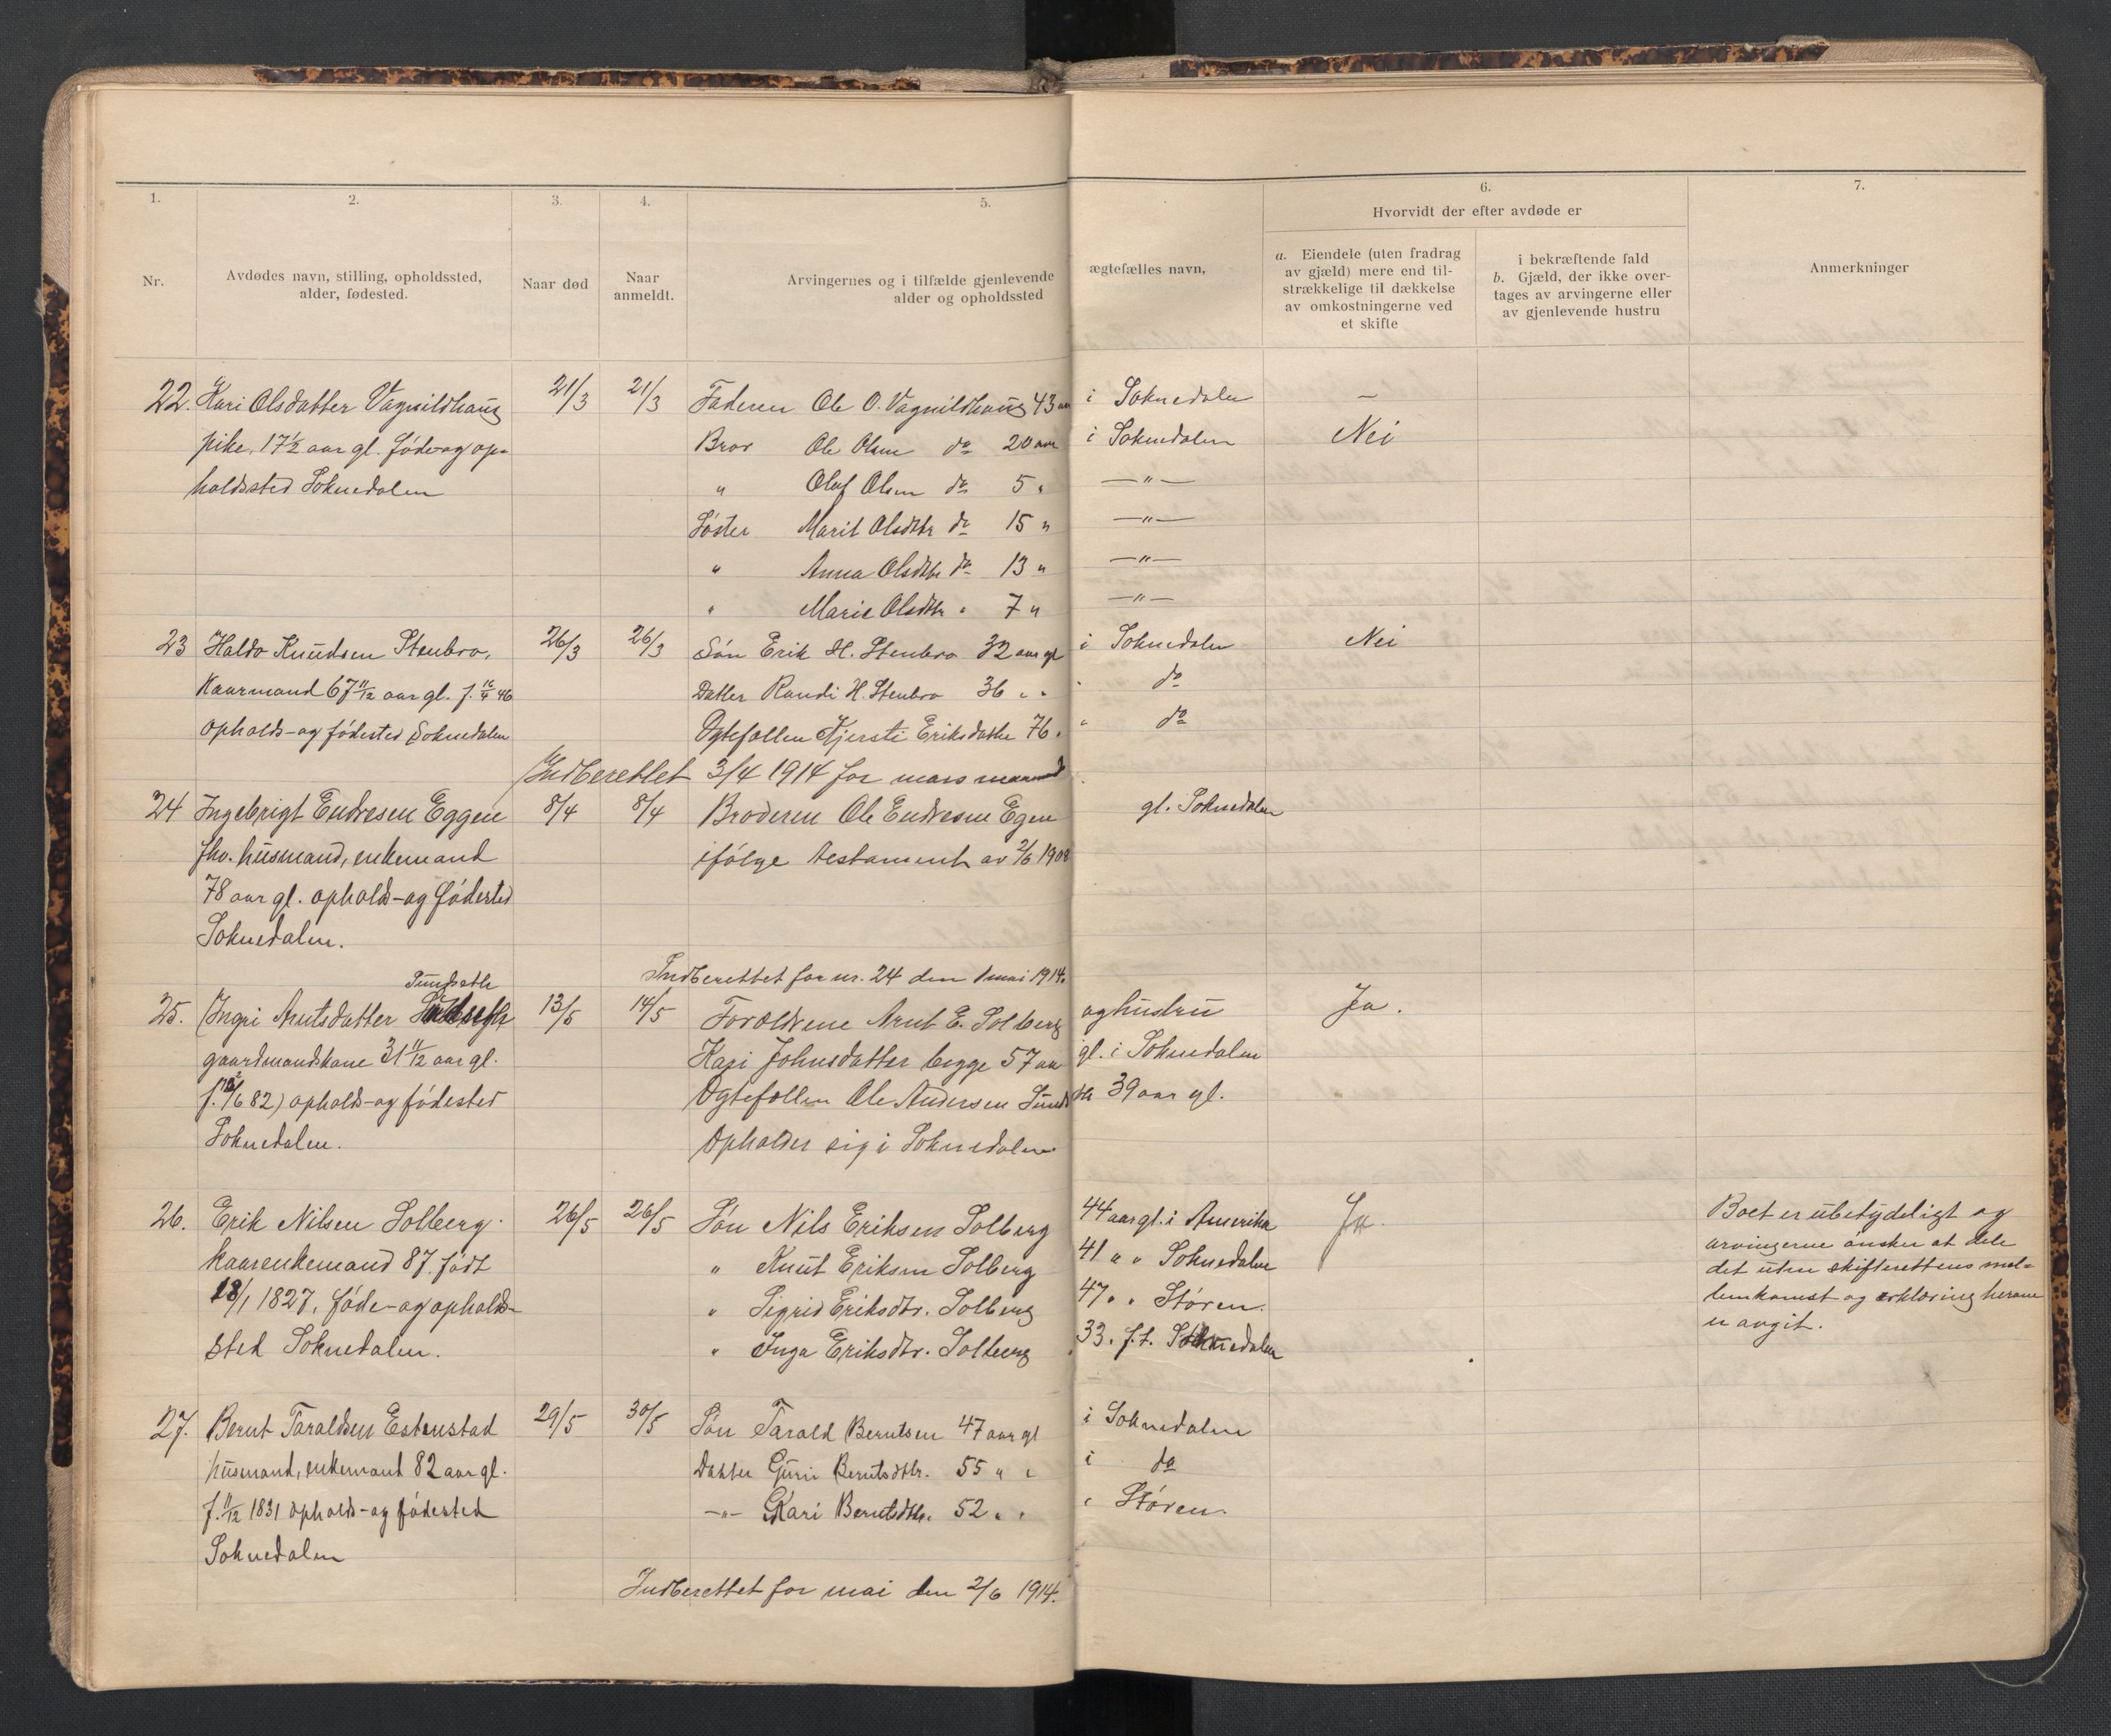 1. 2. 3. 4. 5. 6. 7.
Hvorvidt der efter avdøde er
Nr.
Avdødes navn, stilling, opholdssted,
alder, fødested.
Naar død
Naar
anmeldt.
Arvingernes og i tilfælde gjenlevende ægtefælles navn,
alder og opholdssted
a. Eiendele (uten fradrag
av gjæld) mere end til-
strækkelige til dækkelse
av omkostningerne ved
et skifte
i bekræftende fald
b. Gjæld, der ikke over-
tages av arvingerne eller
av gjenlevende hustru
Anmerkninger
22. Kari Olsdatter Vagnildhaug 21/3 21/3 Faderen Ole O. Vagnildhaug 43 aar i Soknedalen —
pike, 17½ aar gl. føde-og op- Bror Ole Olsen do 20 aar i Soknedalen Nei
holdssted Soknedalen " Olaf Olsen do 5 " —"—
Søster Marit Olsdtr do 15 " —"—
" Anna Olsdtr do 13 " —"—
" Marie Olsdtr " 7 " —"—
23 Haldo Knudsen Stenbro, 26/3 26/3 Søn Erik H. Stenbro 32 aar gl i Soknedalen Nei
Kaarmand 67 11/12 aar gl. f. 16/4 46 Datter Randi H. Stenbro 36 " " " do
opholds-og fødested Soknedalen Ægtefællen Kjersti Eriksdatter 76 " " do
Indberettet 3/4 1914 for mars maaned
24 Ingebrigt Endresen Eggen 8/4 8/4 Broderen Ole Endresen Egen gl. Soknedalen
fhv. husmand, enkemand ifølge testament av 2/6 1908
78 aar gl. opholds-og fødested
Soknedalen.
Indberettet for nr. 24 den 1 mai 1914.
25. Ingri Arntsdatter 13/5 14/5 Forældrene Arnt E. Solberg og hustru Ja.
gaardmandskone 31 11/12 aar gl. Kari Johnsdatter begge 57 aar gl. i Soknedalen
82) opholds-og fødested Ægtefællen Ole Andersen 39 aar gl.
Soknedalen. Opholder sig i Soknedalen
26. Erik Nilsen Solberg. 26/5 26/5 Søn Nils Eriksen Solberg 44 aar gl. i Amerika Ja. Boet er ubetydeligt og
kaarenkemand 87. født " Knut Eriksen Solberg 41 " " Soknedalen arvingerne ønsker at dele
18/1 1827, føde-og opholds- " Sigrid Eriksdtr. Solberg 47 " " Støren. det uten skifterettens mel-
sted Soknedalen. " Inga Eriksdtr. Solberg 33. f.t. Soknedalen lemkomst og erklæring herom
er avgit.
27. Bernt Taraldsen Estenstad 29/5 30/5 Søn Tarald Berntsen 47 aar gl i Soknedalen
husmand, enkemand 82 aar gl. Datter Guri Berntsdtr. 55 " " i do
f. 11/12 1831 opholds-og fødested —"— Kari Berntsdtr. 52 " " " Støren.
Soknedalen
Indberettet for mai den 2/6 1914.